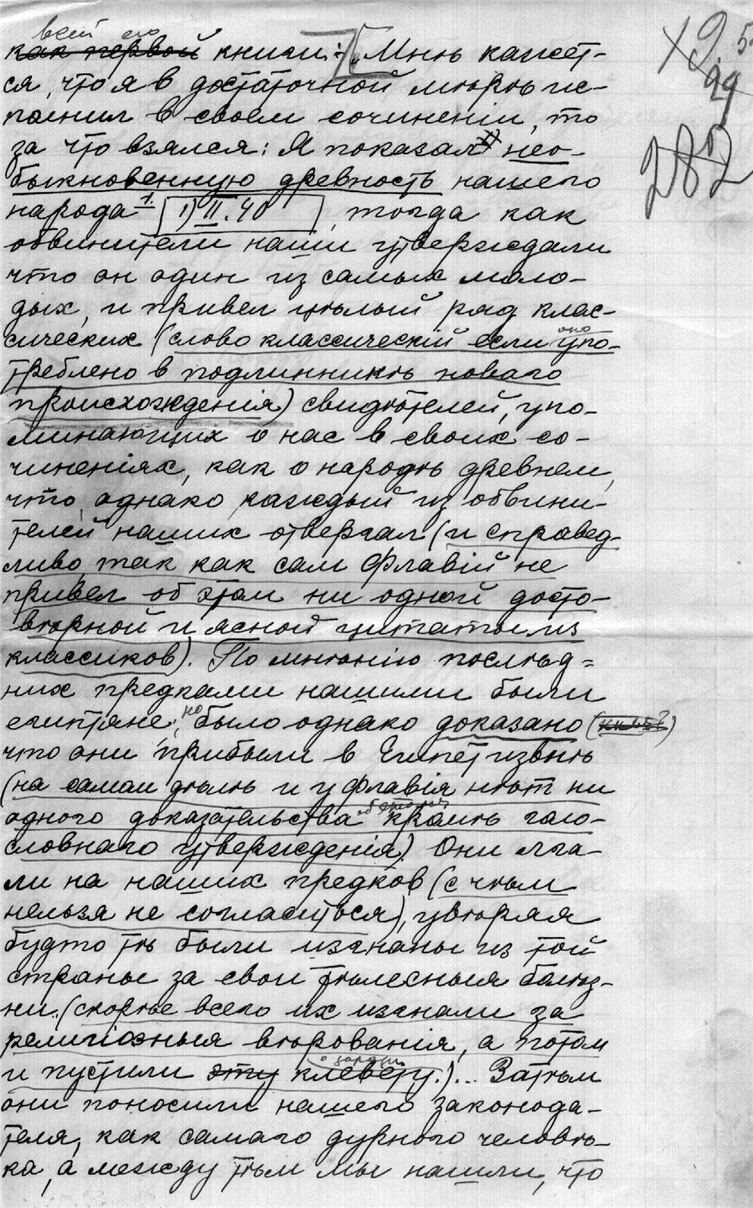 всей его
как первой книги: „Мнѣ кажет-
ся, что я в достаточной мѣрѣ ис-
полнил в своем сочиненіи, то
за что взялся: Я показал нео-
быкновенную древность нашего
народа 1 1) II.40 , тогда как
обвинители наши утверждали
что он один из самых моло-
дых, и привел цѣлый ряд клас-
сических (слово классическій если оно упо-
треблено в подлинникѣ новаго
происхожденія) свидѣтелей, упо-
минающих о нас в своих со-
чиненіях, как о народѣ древнем,
что, однако, каждый из обвини-
телей наших отвергал (и справед-
ливо, так как сам Флавій не
привел об этом ни одной досто-
вѣрной и ясной цитаты из
классиков). По мнѣнію послѣд-
них предками нашими были
египтяне, но было однако доказано
что они прибыли в Египет извнѣ
(на самом дѣлѣ и у Флавія нѣт ни
одного доказательства кромѣ голо-
словнаго утвержденія). Они лга-
ли на наших предков (с чѣм
нельзя не согласиться), увѣряя
будто тѣ были изгнаны из той
страны за свои тѣлесныя болѣз-
ни. (скорѣе всего их изгнали за
религіозныя вѣрованія, а потом
и пустили эту клевету.)... Затѣм
они поносили нашего законода-
теля, как самаго дурного человѣ-
ка, а между тѣм мы нашли, что
282